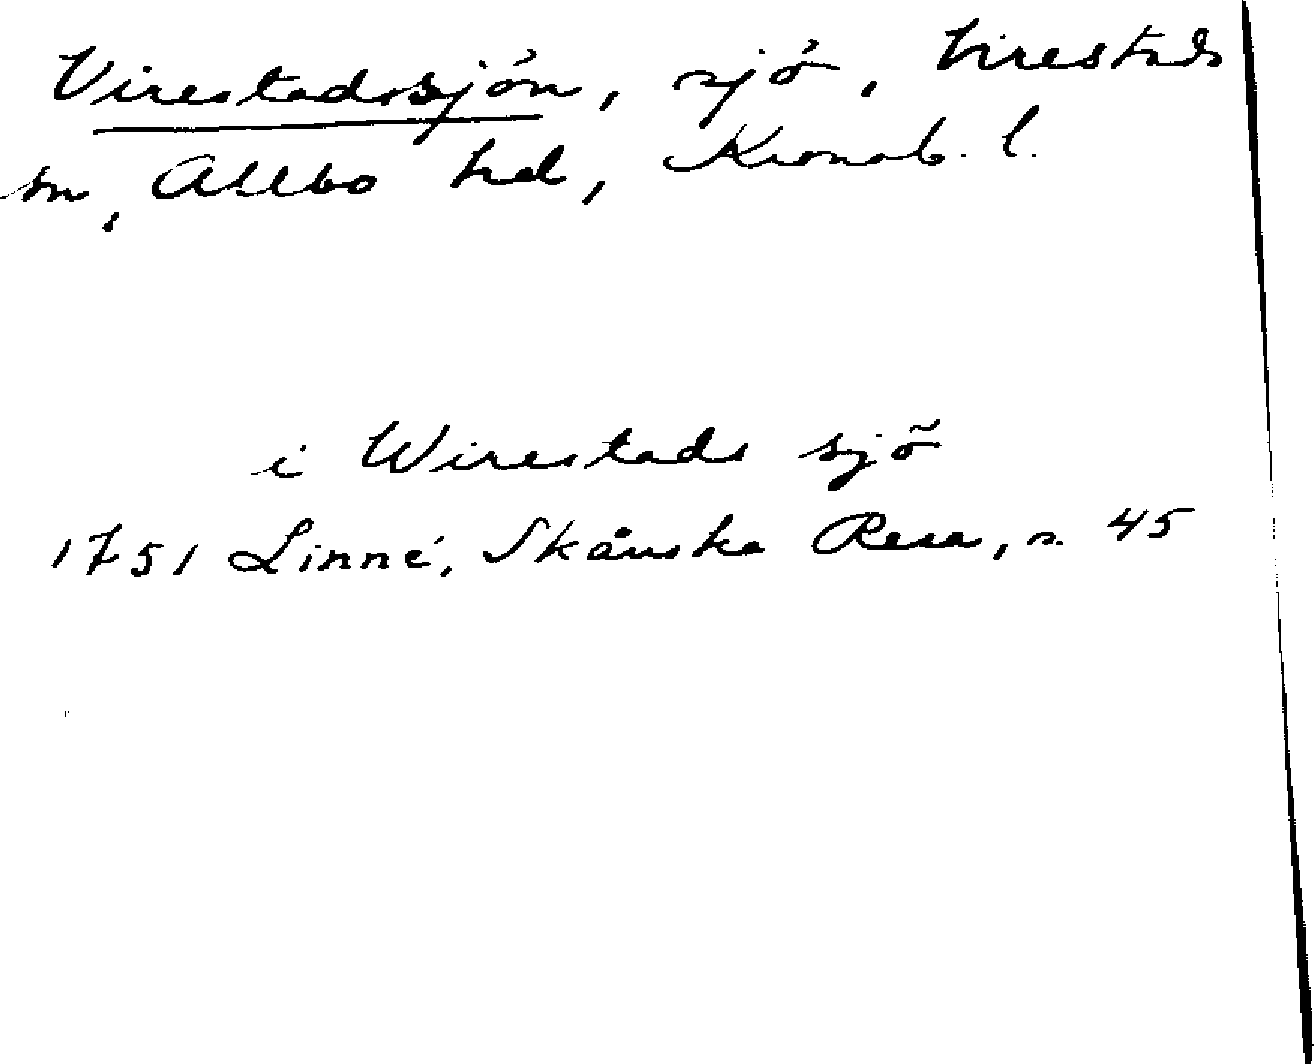 Virestadssjön, sjö, Virestads
sn, Allbo hd, Kronob. l.
i Wirestads sjö
1751 Linné, Skånska Resa, s. 45